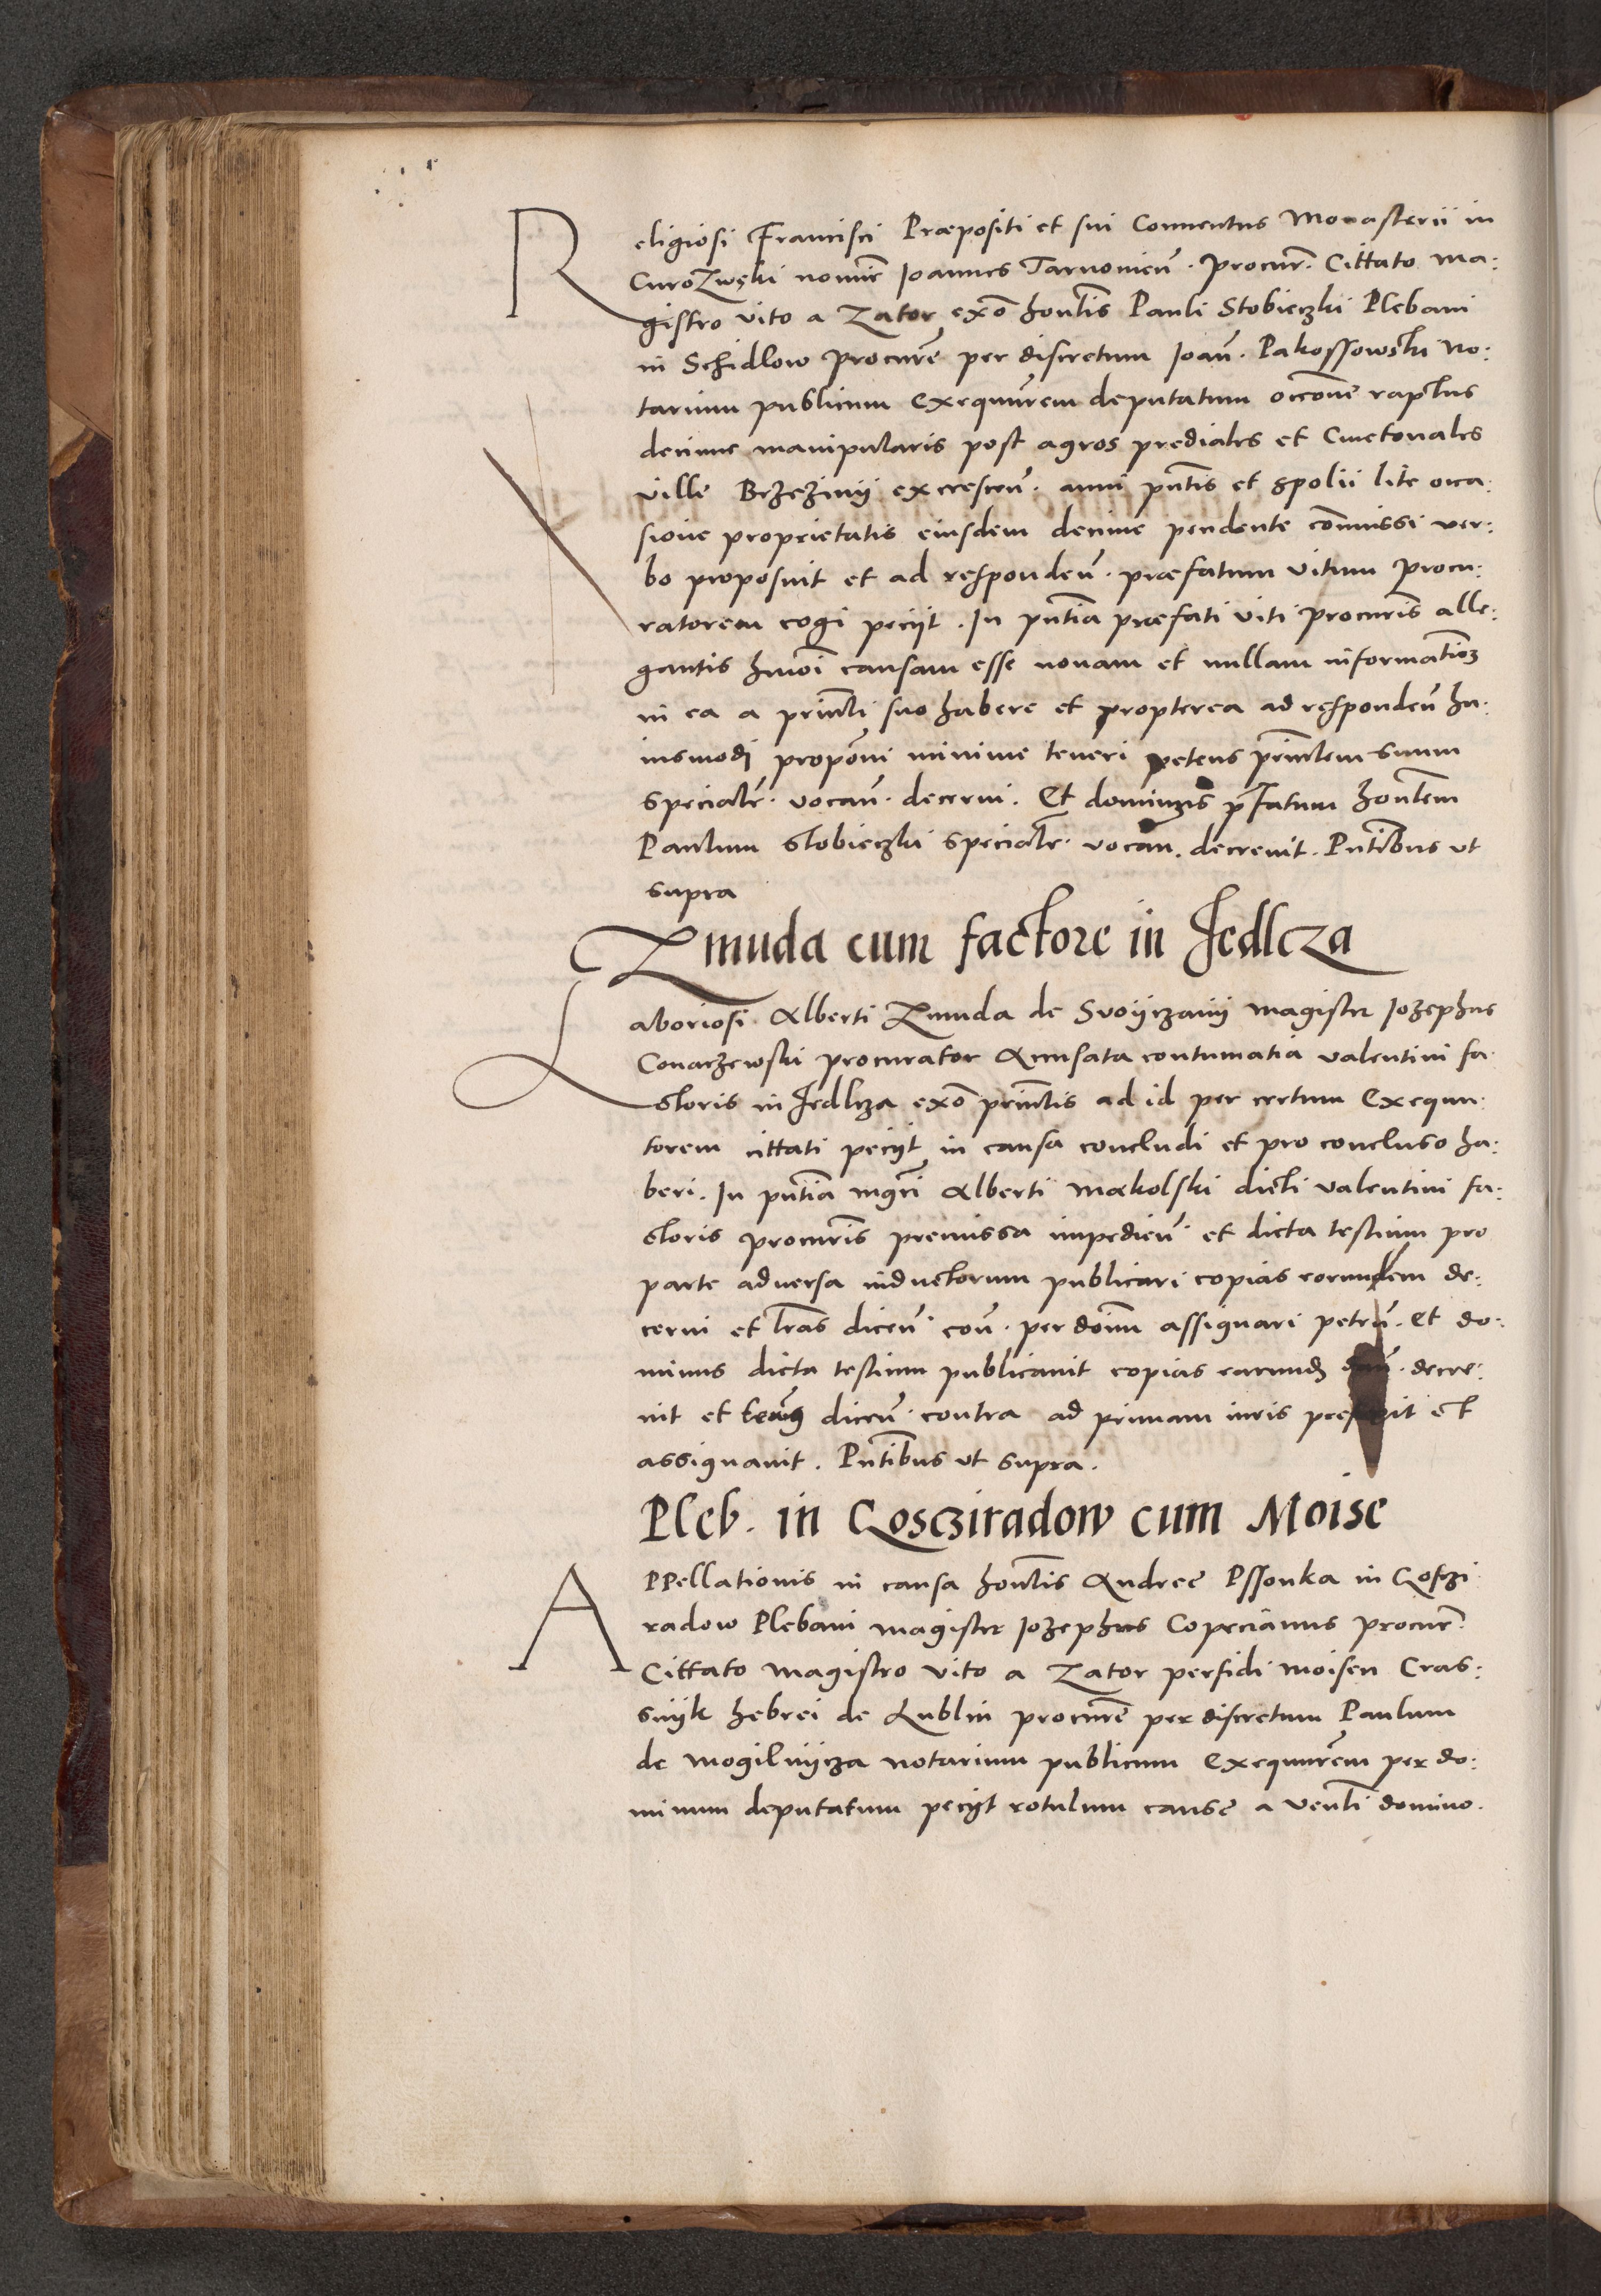 Religiosi Francisci Præpositi et sui Conuentus Monasterii in
Curozwęki nomīe Ioannes Tarnonieñ. procur̃. Cittato Ma:
gistro Vito a Zator exõ hon̄tis Pauli Stobieczki Plebani
in Schidlow procurẽ per discretum Ioañ. Pakossowski No:
tarium publicum Exequut̃rem deputatum occõne raptus
decime manipularis post agros prediales et Cmetonales
ville Brzezinij excresceñ. anni pn̄tis et spolii lite occa:
sione proprietatis eiusdem decime pendente cõmissi ver:
bo proposuit et ad respondeñ. præfatum Vitum procu:
ratorem cogi peciit. In pn̄tia præfati Viti procur̃is alle:
gantis hmõi causam esse nouam et nullam informatiõȝ
in ea a prin̄cli suo habere et propterea ad respondeñ hu:
iusmodj propõni minime teneri petens prin̄clem suum
specialẽ. vocañ. decerni. Et dominus p̄fatum hon̄tem
Paulum Stobieczki specialr̃. vocañ. decreuit. Pn̄tibus vt
supra
Zmuda cum factore in Jedlcza
Laboriosi Alberti Zmuda de Svoijczanij magister Iozephus
Conarzewski procurator Accusata contumatia Valentini fa:
ctoris in Jedlcza exõ prin̄clis ad id per certum Exequu:
torem cittati peciit in causa concludi et pro concluso ha:
beri. In pn̄tia mgr̃i Alberti Mąkolski dicti Valentini fa:
ctoris procur̃is premissa impedieñ et dicta testium pro
parte aduersa inductorum publicari copias eorumdem de:
cerni et l̃ras diceñ. coñ. per dom̃ assignari peteñ. Et do:
minus dicta testium publicauit copias earumdȝ dañ. decre:
uit et diceñ. contra ad primam iuris prefixit et
assignauit. Pn̄tibus vt supra.
Pleb. in Goscziradow cum Moise
APPellationis in causa hon̄tis Andree Pssonka in Gosczi
radow Plebani magister Iozephus Coprcianus procur̃.
Cittato magistro Vito a Zator perfidi Moisen Cras:
snijk hebrei de Lublin procurẽ per discretum Paulum
de Mogilnijcza notarium publicum Exequut̃rem per do:
minum deputatum peciit rotulum cause a Venl̃i domino.